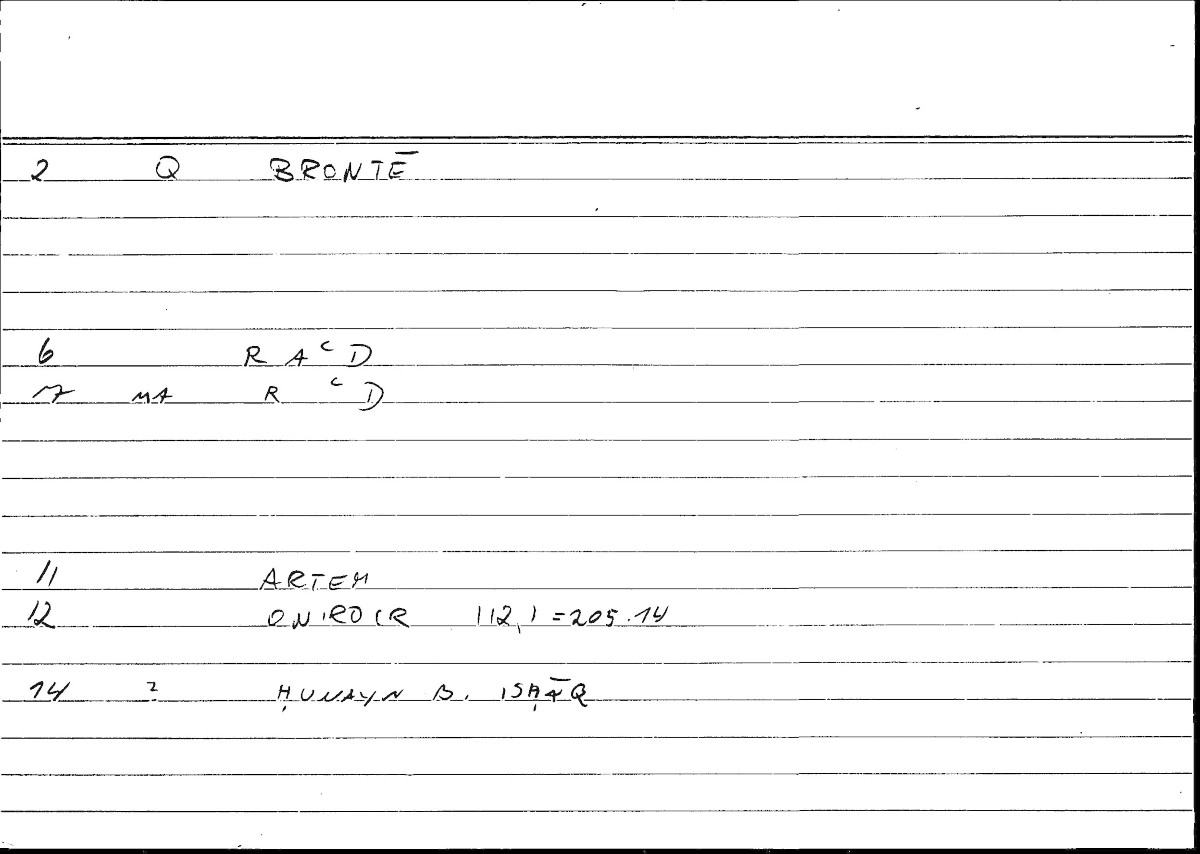 2 Q BRONTĒ
6 R A ʿ D
7 MA R ʿ D
11 ARTEM
12 ONIROCR 112,1 = 205.14
14 ? ḤUNAYN B. ISḤĀQ